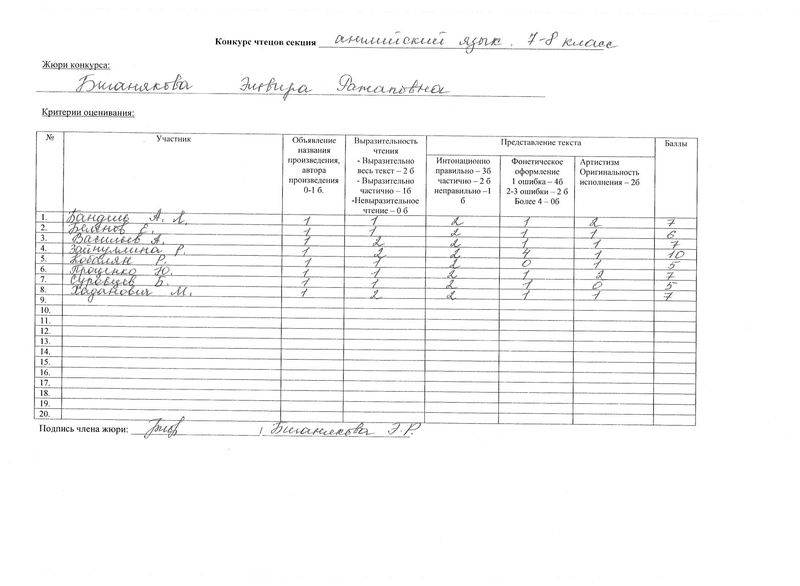 Конкурс чтецов секция английский язык. 7-8 класс
Жюри конкурса:
Бганякова Эльвира Ратаповна
Критерии оценивания:
№ Участник Объявление названия произведения, автора произведения 0-1 б. Выразительность чтения - Выразительно весь текст – 2 б - Выразительно частично – 1б -Невыразительное чтение – 0 б Представление текста Баллы
Интонационно правильно – 3б частично – 2 б неправильно –1 б Фонетическое оформление 1 ошибка – 4б 2-3 ошибки – 2 б Более 4 – 0б Артистизм Оригинальность исполнения – 2б
1. Бандиль А. Л. 1 1 2 1 2 7
2. Белянов Е. 1 1 2 1 1 6
3. Васильев А. 1 2 2 1 1 7
4. Зайнуллина Р. 1 2 2 4 1 10
5. Кобалян Р. 1 1 2 0 1 5
6. Проценко Ю. 1 1 2 1 2 7
7. Суровцев Б. 1 1 2 1 0 5
8. Хаданович М. 1 2 2 1 1 7
9.
10.
11.
12.
13.
14.
15.
16.
17.
18.
19.
20.
Подпись члена жюри: / Бганякова Э.Р.